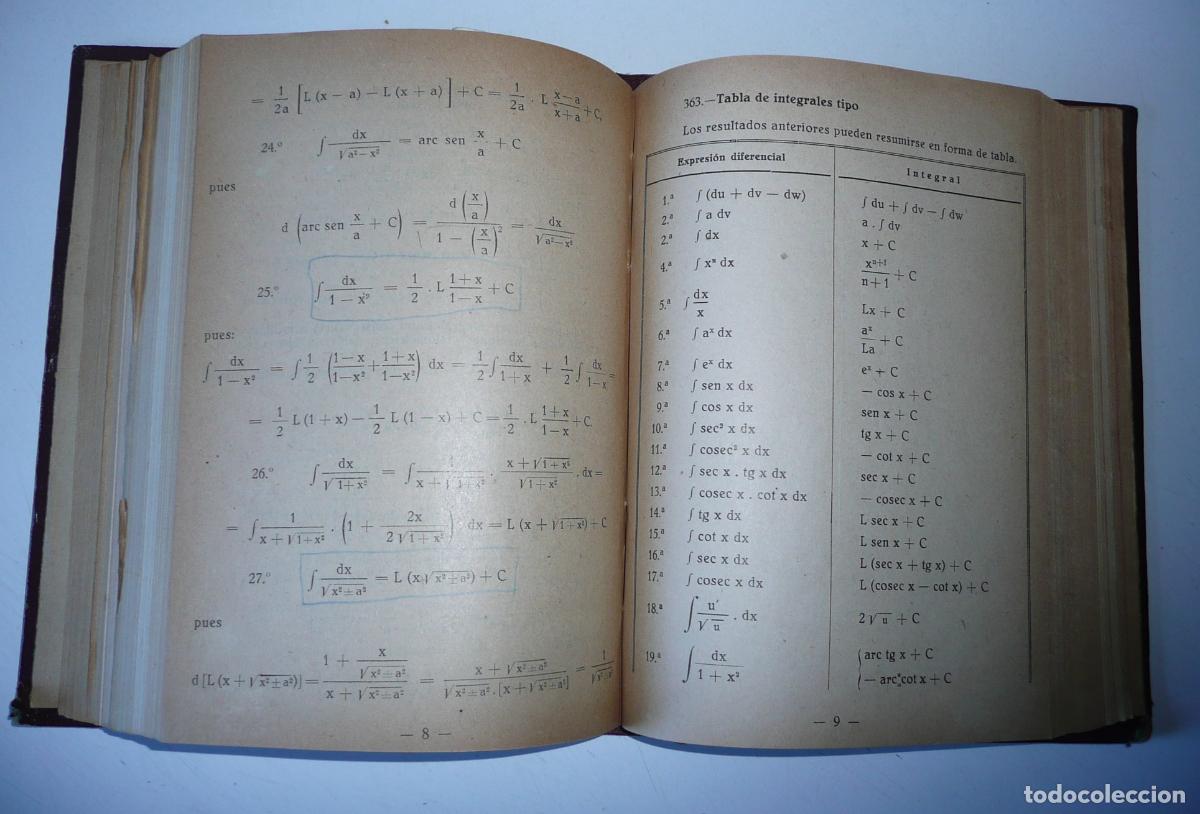 = 1/2a [L (x − a) − L (x + a)] + C = 1/2a . L x−a/x+a + C,
24.º ∫ dx/√a²−x² = arc sen x/a + C
pues
d (arc sen x/a + C) = d (x/a) / √1 − (x/a)² = dx/√a²−x²
25.º ∫ dx/1−x² = 1/2 . L 1+x/1−x + C
pues:
∫ dx/1−x² = ∫ 1/2 (1−x/1−x² + 1+x/1−x²) dx = 1/2 ∫ dx/1+x + 1/2 ∫ dx/1−x =
= 1/2 L (1 + x) − 1/2 L (1 − x) + C = 1/2 . L 1+x/1−x + C.
26.º ∫ dx/√1+x² = ∫ 1/x+√1+x² . x+√1+x²/√1+x² . dx =
= ∫ 1/x+√1+x² . (1 + 2x/2√1+x²) . dx = L (x + √1+x²) + C
27.º ∫ dx/√x²±a² = L (x√x²±a²) + C
pues
d [L (x + √x²±a²)] = 1 + x/√x²±a² / x + √x²±a² = x + √x²±a² / √x²±a² . [x + √x²±a²] = 1/√x²±a²
— 8 —
363.—Tabla de integrales tipo
Los resultados anteriores pueden resumirse en forma de tabla.
Expresión diferencial Integral
1.ª ∫ (du + dv − dw) ∫ du + ∫ dv − ∫ dw
2.ª ∫ a dv a . ∫ dv
2.ª ∫ dx x + C
4.ª ∫ xⁿ dx xⁿ⁺¹/n+1 + C
5.ª ∫ dx/x Lx + C
6.ª ∫ aˣ dx aˣ/La + C
7.ª ∫ eˣ dx eˣ + C
8.ª ∫ sen x dx − cos x + C
9.ª ∫ cos x dx sen x + C
10.ª ∫ sec² x dx tg x + C
11.ª ∫ cosec² x dx − cot x + C
12.ª ∫ sec x . tg x dx sec x + C
13.ª ∫ cosec x . cot x dx − cosec x + C
14.ª ∫ tg x dx L sec x + C
15.ª ∫ cot x dx L sen x + C
16.ª ∫ sec x dx L (sec x + tg x) + C
17.ª ∫ cosec x dx L (cosec x − cot x) + C
18.ª ∫ u'/√u . dx 2√u + C
19.ª ∫ dx/1 + x² { arc tg x + C
− arc cot x + C
— 9 —
todocoleccion